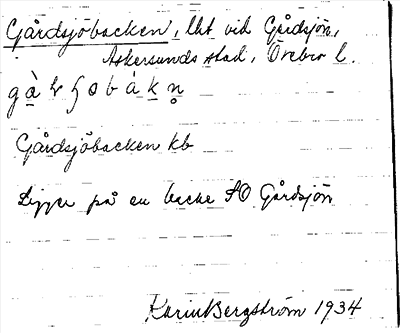 Gårdsjöbacken, lht vid Gårdsjön,
Askersunds stad, Örebro l.
Gårdsjöbacken kb
Ligger på en backe SO Gårdsjön
Karin Bergström 1934